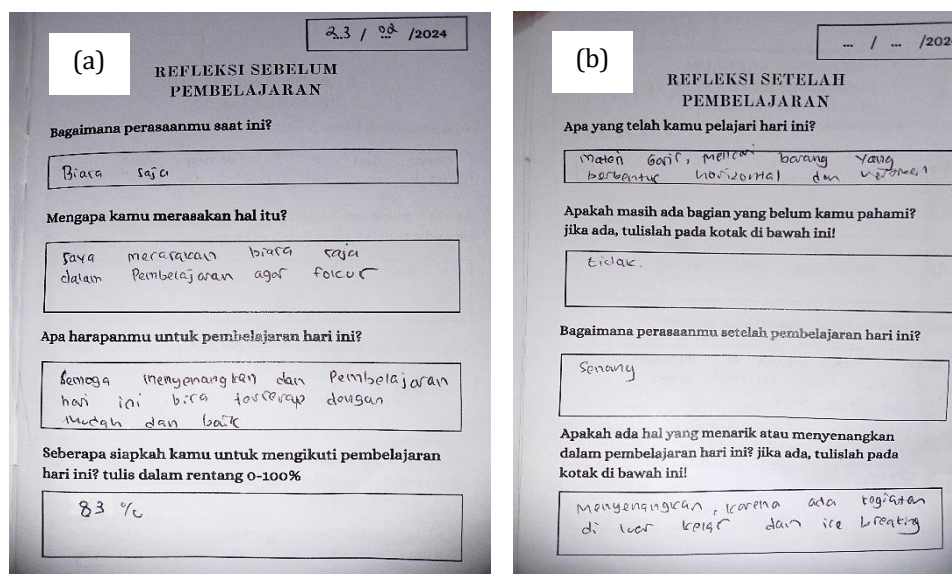 (a)
23 / 02 /2024
REFLEKSI SEBELUM
PEMBELAJARAN
Bagaimana perasaanmu saat ini?
Biasa saja
Mengapa kamu merasakan hal itu?
saya merasakan biasa saja
dalam Pembelajaran agar fokus
Apa harapanmu untuk pembelajaran hari ini?
Semoga menyenangkan dan Pembelajaran
hari ini bisa terserap dengan
mudah dan baik
Seberapa siapkah kamu untuk mengikuti pembelajaran
hari ini? tulis dalam rentang 0-100%
83 %
(b)
... / ... /202
REFLEKSI SETELAH
PEMBELAJARAN
Apa yang telah kamu pelajari hari ini?
materi Garis, mencari barang yang
berbentuk horizontal dan
Apakah masih ada bagian yang belum kamu pahami?
jika ada, tulislah pada kotak di bawah ini!
tidak.
Bagaimana perasaanmu setelah pembelajaran hari ini?
Senang
Apakah ada hal yang menarik atau menyenangkan
dalam pembelajaran hari ini? jika ada, tulislah pada
kotak di bawah ini!
Menyenangkan, karena ada kegiatan
di luar kelas dan ice breaking